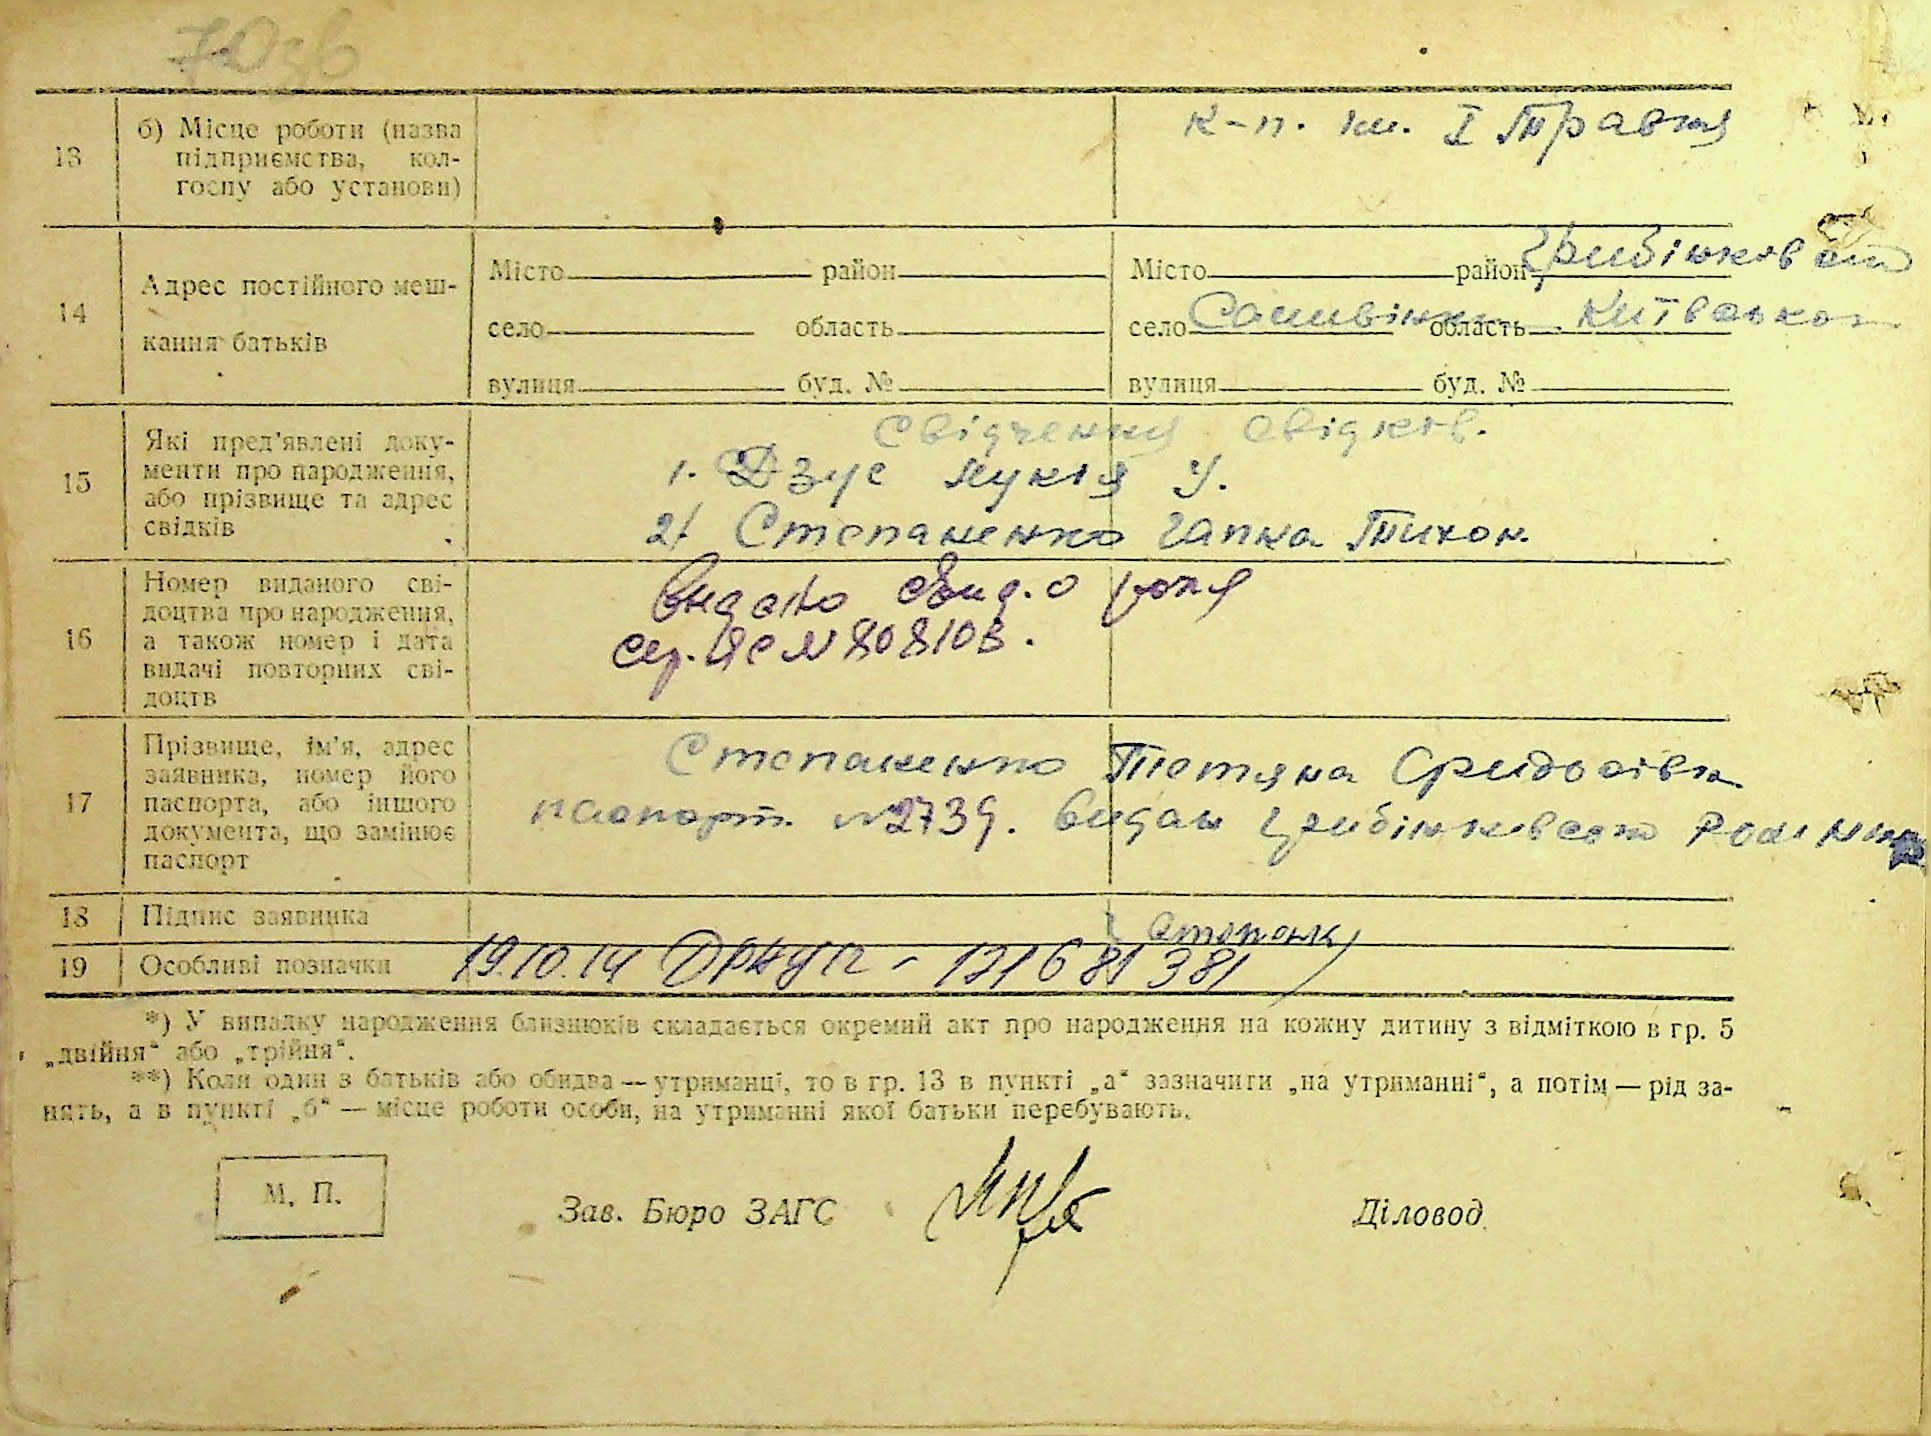 13
б) Місце роботи (назва
підприємства, кол-
госпу або установи)
к-п. ім. І Травня
14
Адрес постійного меш-
кання батьків
Місто район
село область
вулиця буд. №
Місто район
село область Київської
вулиця буд. №
15
Які пред'явлені доку-
менти про народження,
або прізвище та адрес
свідків
Свідчення свідків.
1. Дзус Лукія У.
2/ Степаненко Гапка Тихон.
16
Номер виданого сві-
доцтва про народження,
а також номер і дата
видачі повторних сві-
доцтв
Сер. ЯС № 808103.
17
Прізвище, ім'я, адрес
заявника, номер його
паспорта, або іншого
документа, що замінює
паспорт
Степаненко Тетяна
паспорт №2739. Видан
18
Підпис заявника
19
Особливі позначки
19.10.14 ДРАЦП - 121681381
*) У випадку народження близнюків складається окремий акт про народження на кожну дитину з відміткою в гр. 5
„двійня“ або „трійня“.
**) Коли один з батьків або обидва — утриманці, то в гр. 13 в пункті „а“ зазначити „на утриманні“, а потім — рід за-
нять, а в пункті „б“ — місце роботи особи, на утриманні якої батьки перебувають.
М. П.
Зав. Бюро ЗАГС
Діловод